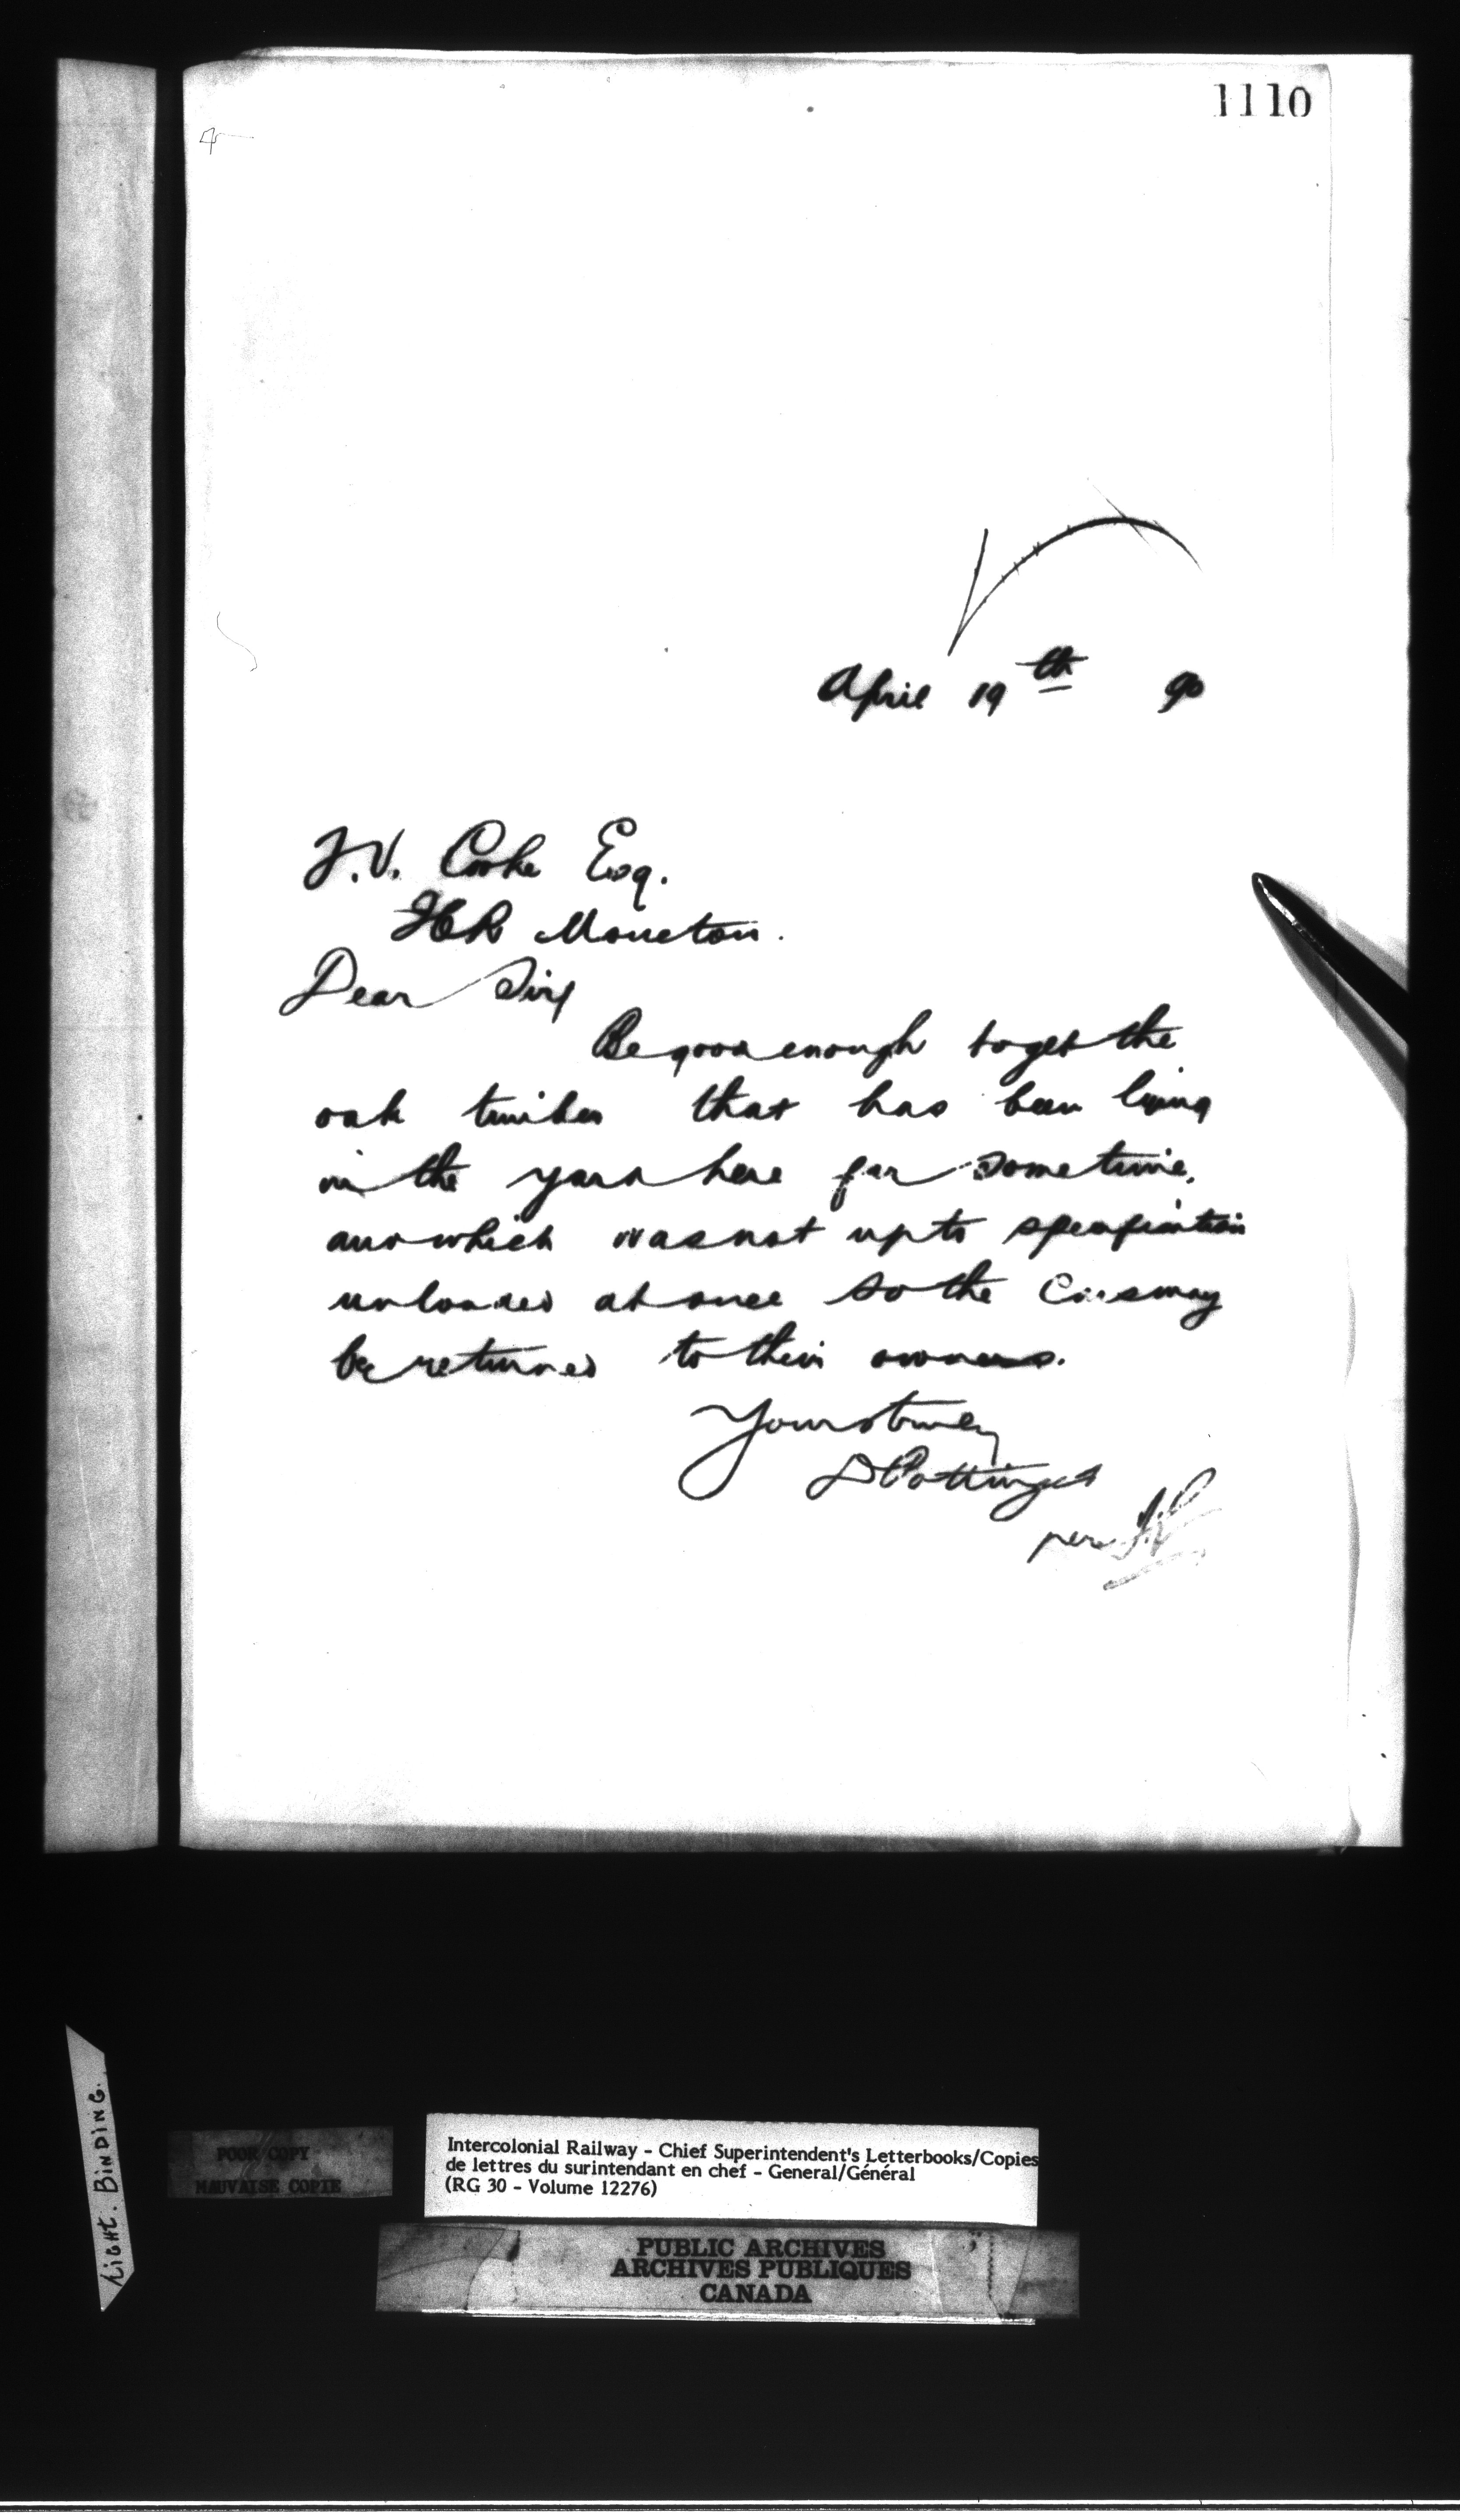 1110
April 19th 90
T.V. Cooke Esq.
ICR Moncton.
Dear Sir/
Be good enough to get the
oak timber that has been lying
in the yard here for some time,
and which was not up to specification
unloaded at once so the Cars may
be returned to their owners.
Yours truly
D Pottinger
per
TIGHT. BINDING.
POOR COPY
MAUVAISE COPIE
Intercolonial Railway - Chief Superintendent's Letterbooks/Copies
de lettres du surintendant en chef - General/Général
(RG 30 - Volume 12276)
PUBLIC ARCHIVES
ARCHIVES PUBLIQUES
CANADA